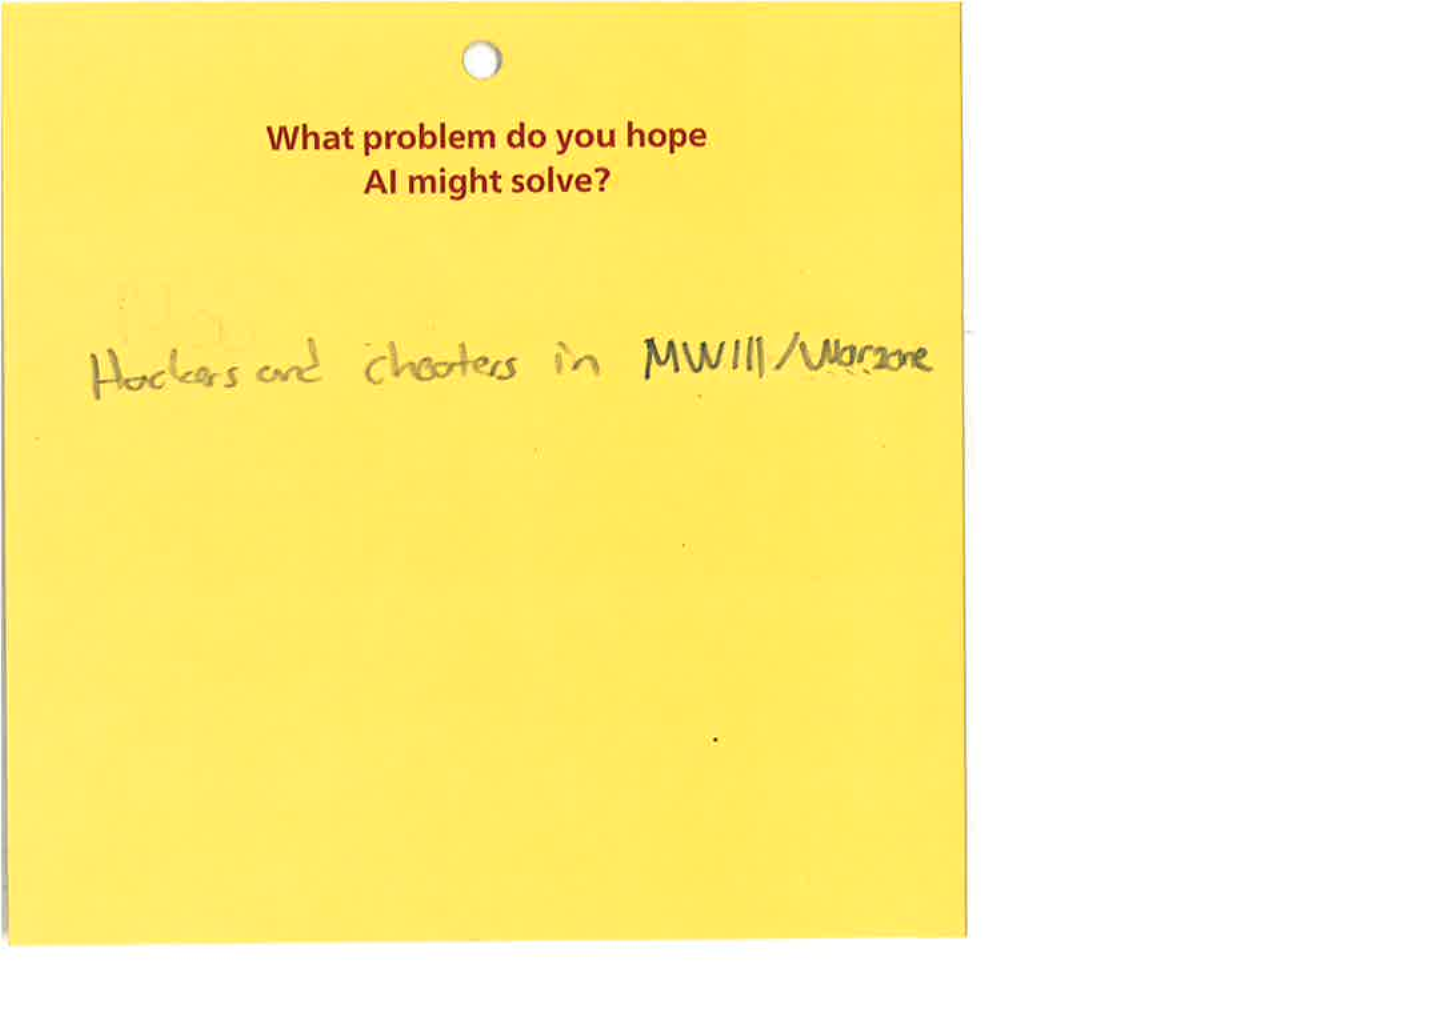 What problem do you hope
AI might solve?
Hackers and cheaters in MWIII/Warzone